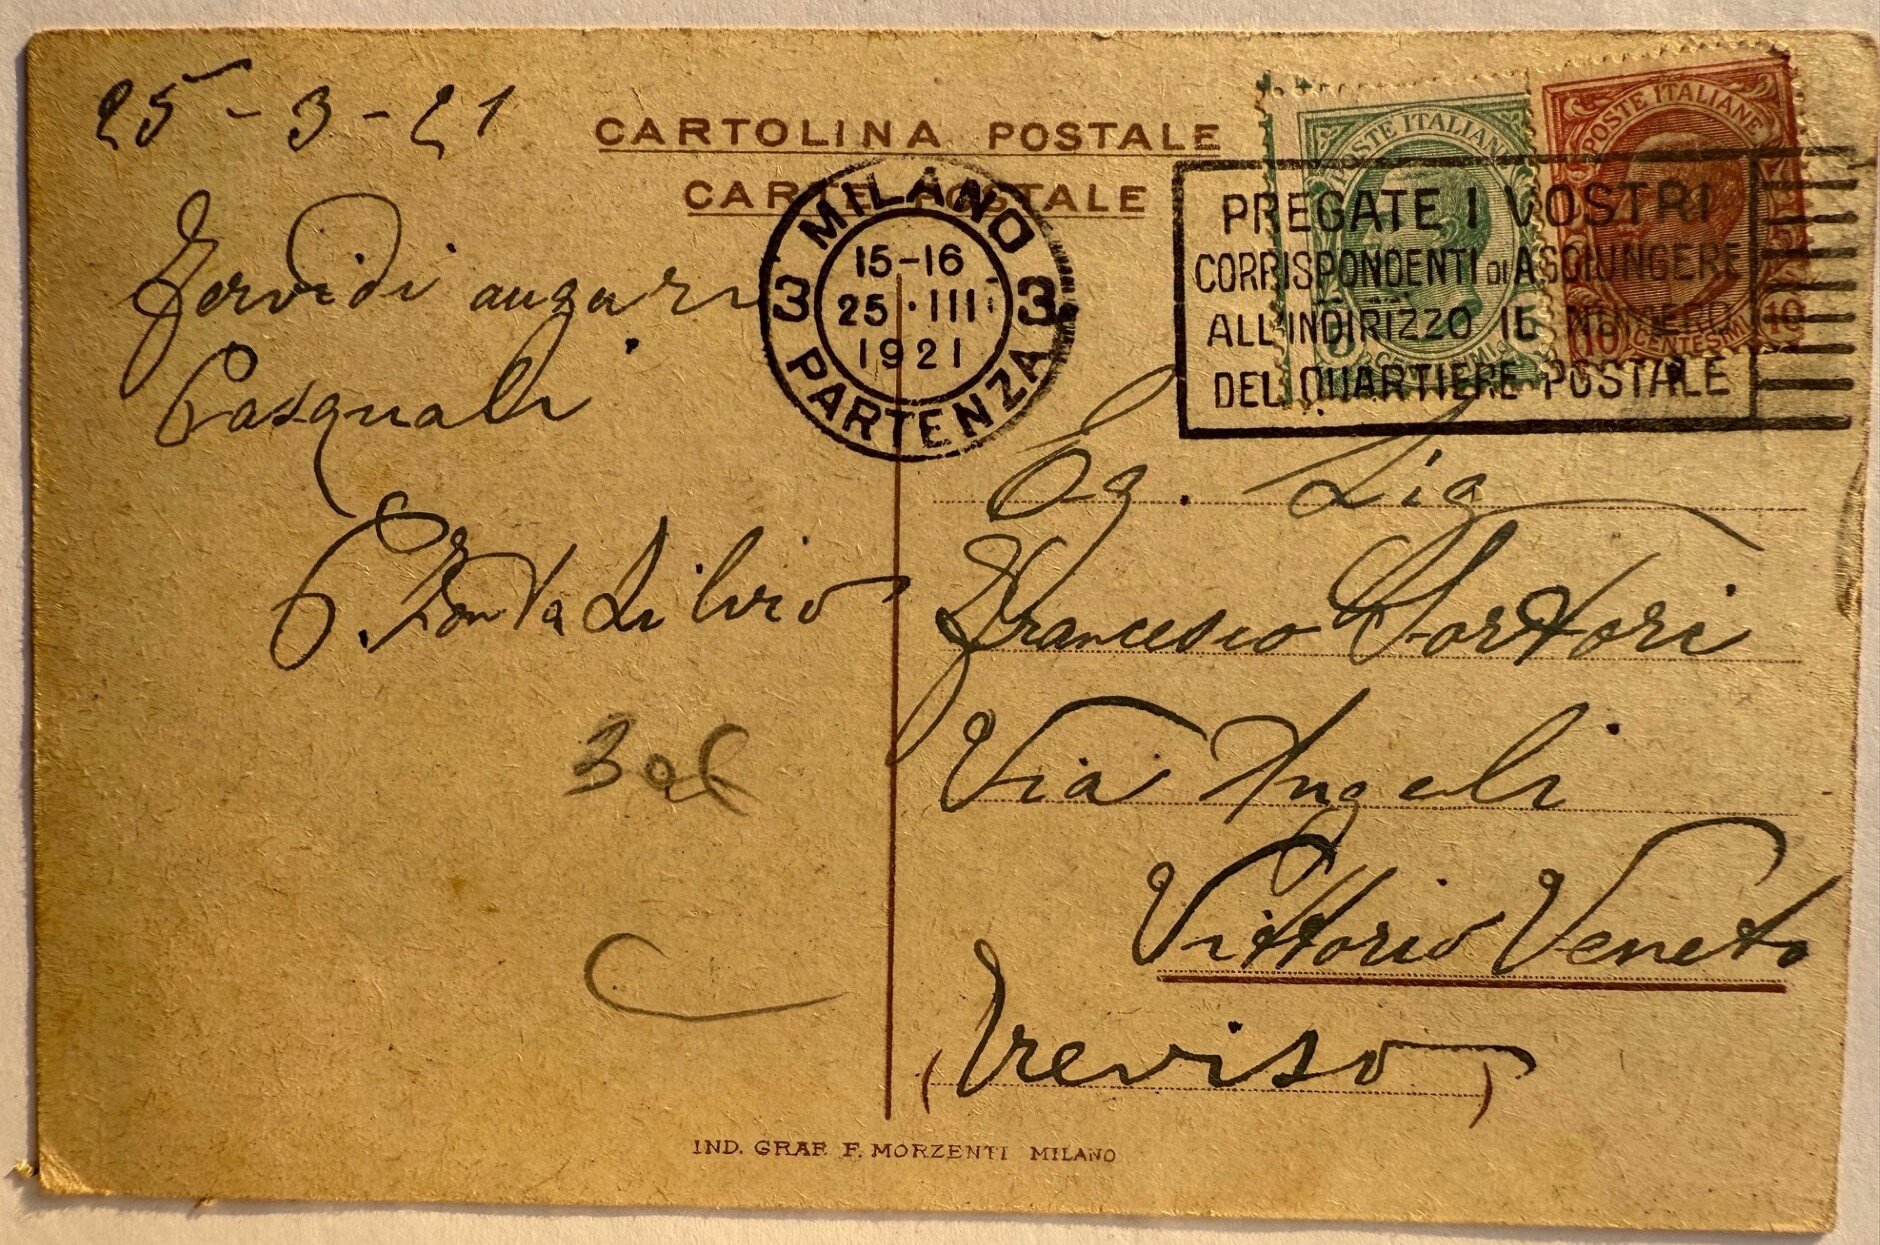 25-3-21
CARTOLINA POSTALE
CARTE POSTALE
MILANO
3 15-16 3
25·III·
1921
PARTENZA
POSTE ITALIANE
CENTESIMI
POSTE ITALIANE
10 10
CENTESIMI
PREGATE I VOSTRI
CORRISPONDENTI DI AGGIUNGERE
ALL'INDIRIZZO IL NUMERO
DEL QUARTIERE POSTALE
Fervidi auguri
Pasquali
Silvio
Eg. Sig
Francesco Sartori
Via Angeli
Vittorio Veneto
(Treviso)
IND. GRAF. F. MORZENTI MILANO